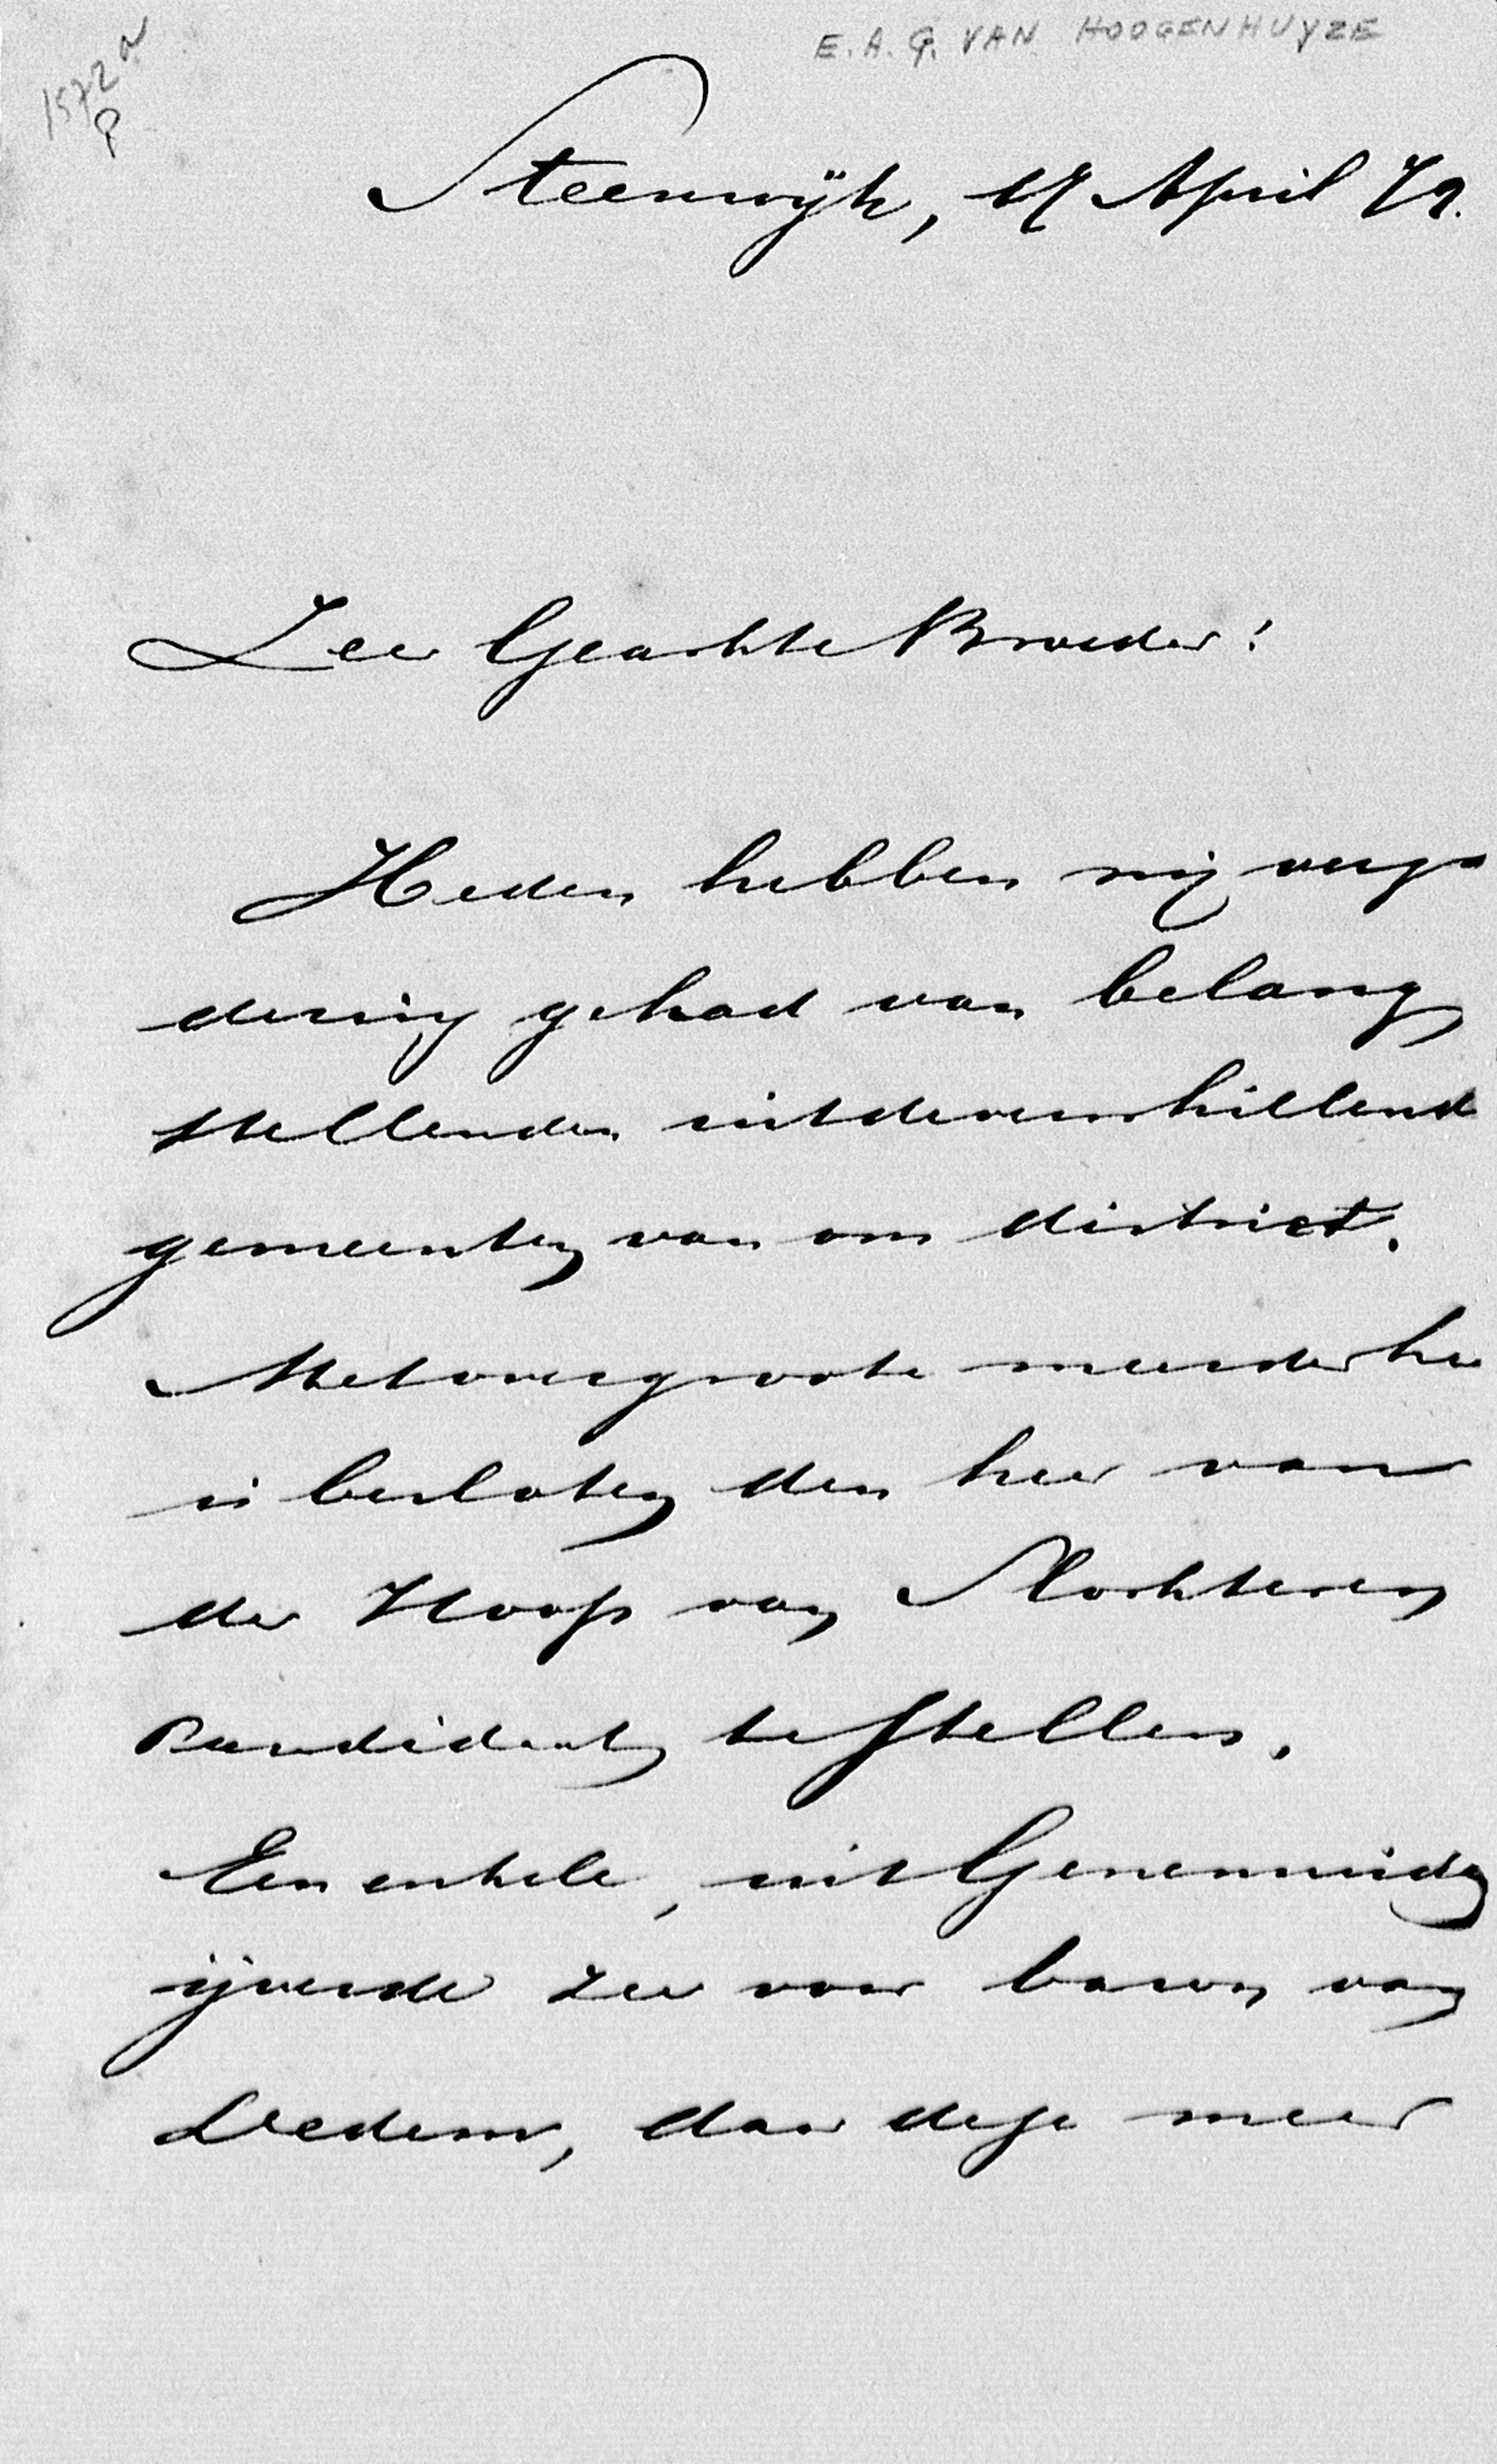 E. A. G. VAN HOOGENHUYZE
1572a
P
Steenwijk, 17 April 79.
Zeer Geachte Broeder!
Heden hebben wij verga
dering gehad van belang
stellenden uit de verschillend
gemeenten van ons district.
Met overgroote meerderhei
is besloten den heer van
der Hoop van Slochteren
Candidaat te stellen.
Een enkele, uit Genemuiden
ijverde zeer voor baron van
Dedem, daar deze meer